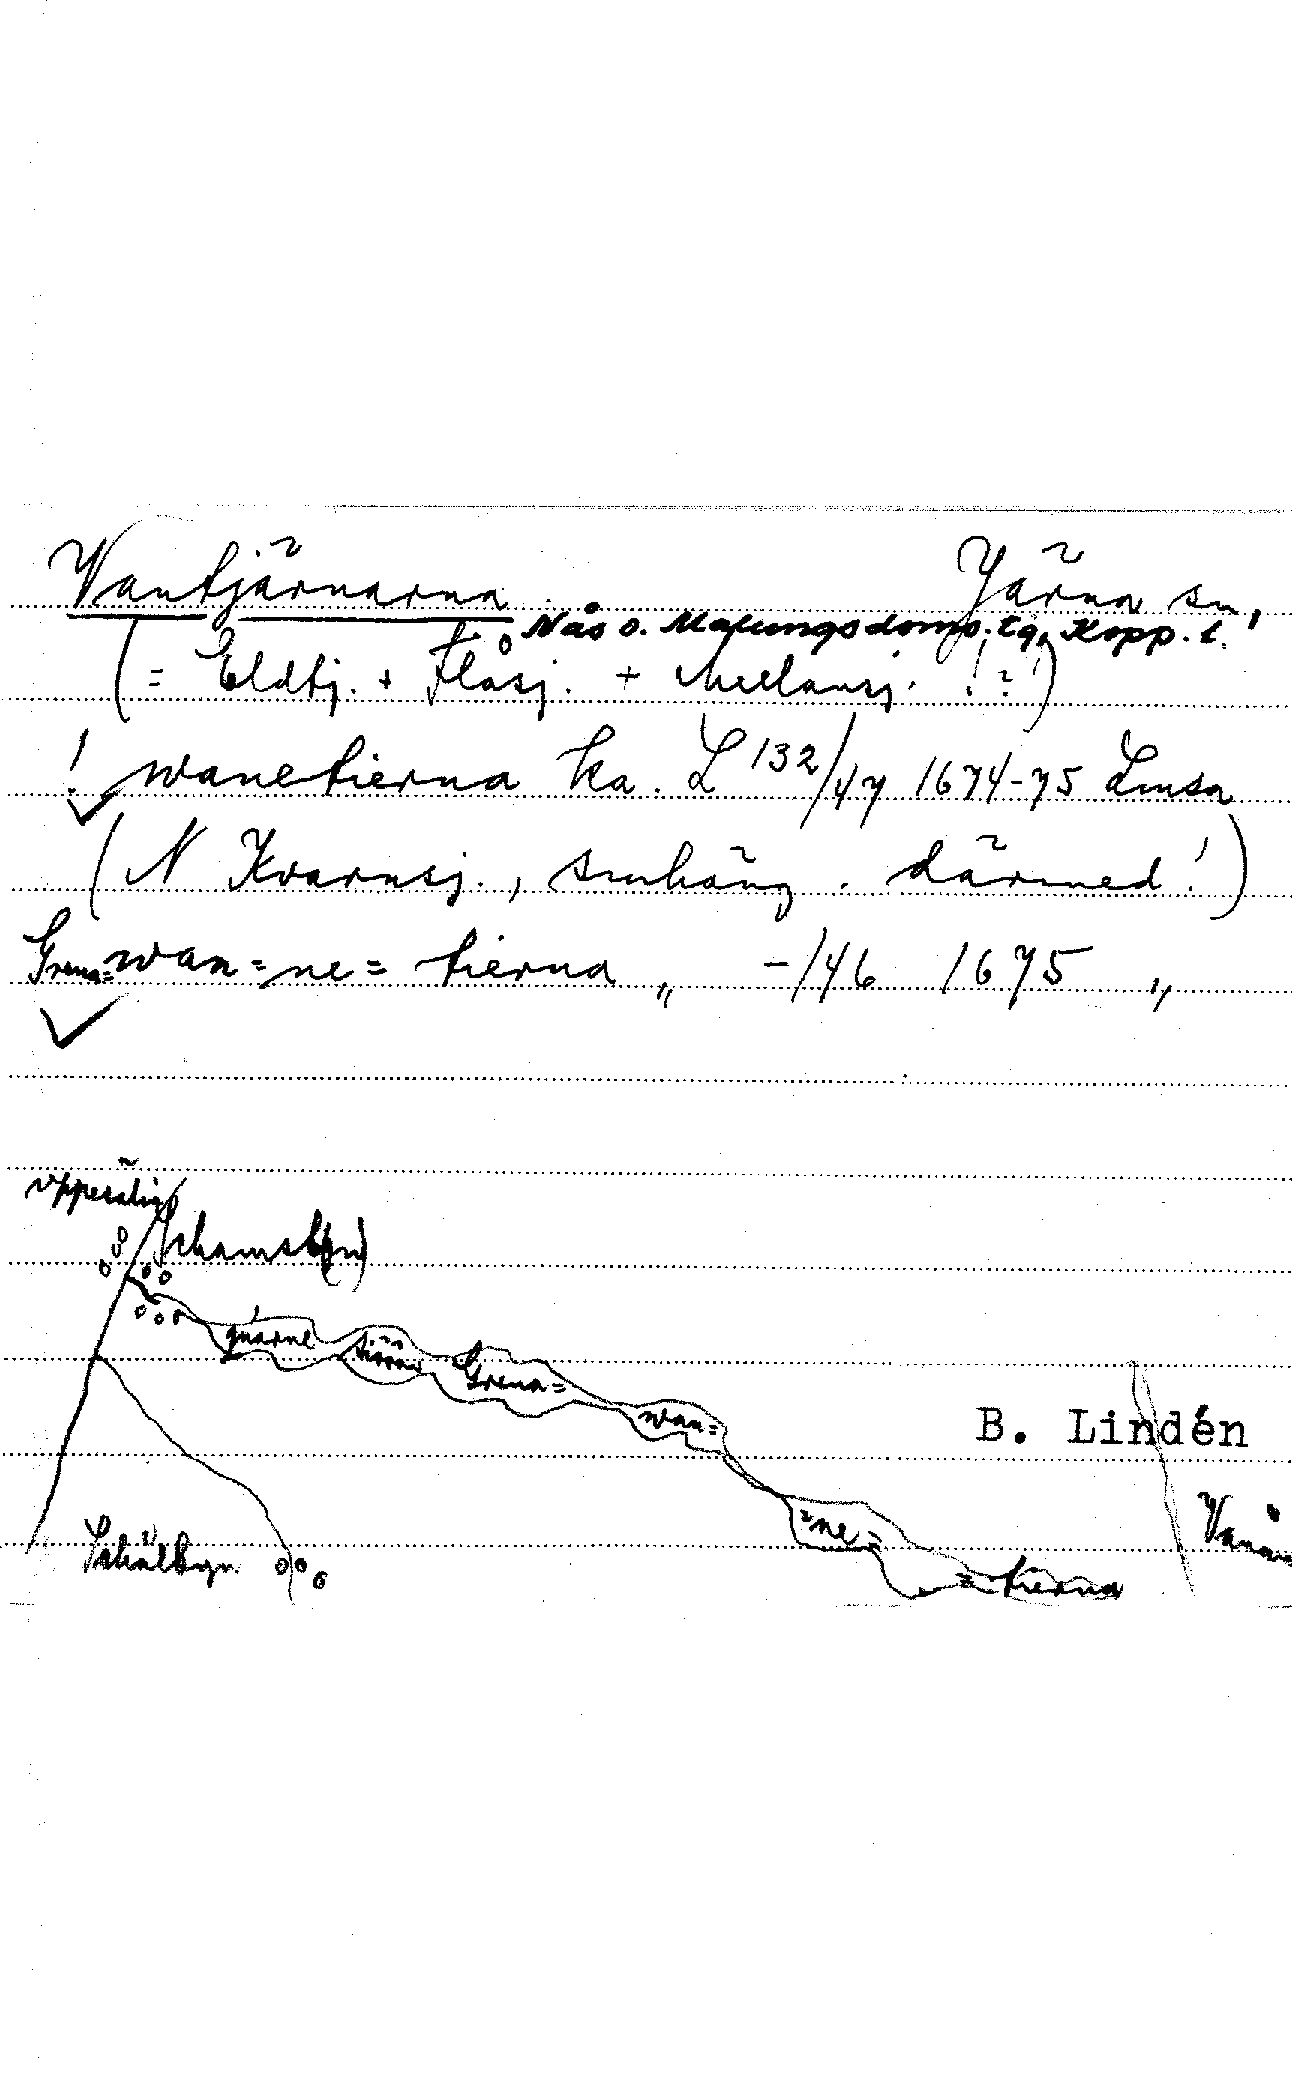 Vantjärnarna Järna sn,
Nås o. Malungs doms. tg, Kopp. l.
(= Eldtj. + Flåsj. + Mellansj. !?)
! wanetierna ka. L 132/47 1674-75 Lmsa
(N Kvarnsj., smhäng. därmed!)
Grena=wan=ne=tierna „ -/46 1675 „
Vppesälig
Schamsb(yn)
quarne tiärna Grena=
wan=
B. Lindén
=ne=
Schålbyn
=tierna